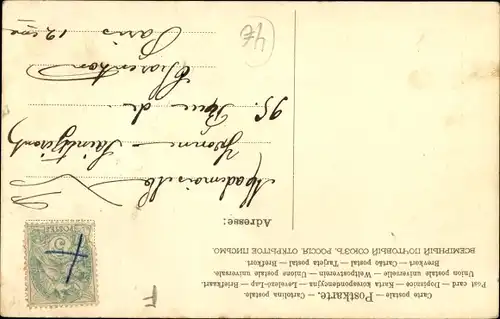 Carte postale. — Cartolina postale.
Postkarte.
Post card — Dopisnice — Karta korespondencyjna — Levelező-Lap — Briefkaart.
Union postale universelle — Weltpostverein — Unione postale universale
Brevkort — Cartão postal — Tarjeta postal — Brefkort.
ВСЕМІРНЫЙ ПОЧТОВЫЙ СОЮЗЪ. РОССІЯ. ОТКРЫТОЕ ПИСЬМО.
Adresse:
Mademoiselle
Yvonne
95. Rue de
Charenton
Paris 12 eme
4€